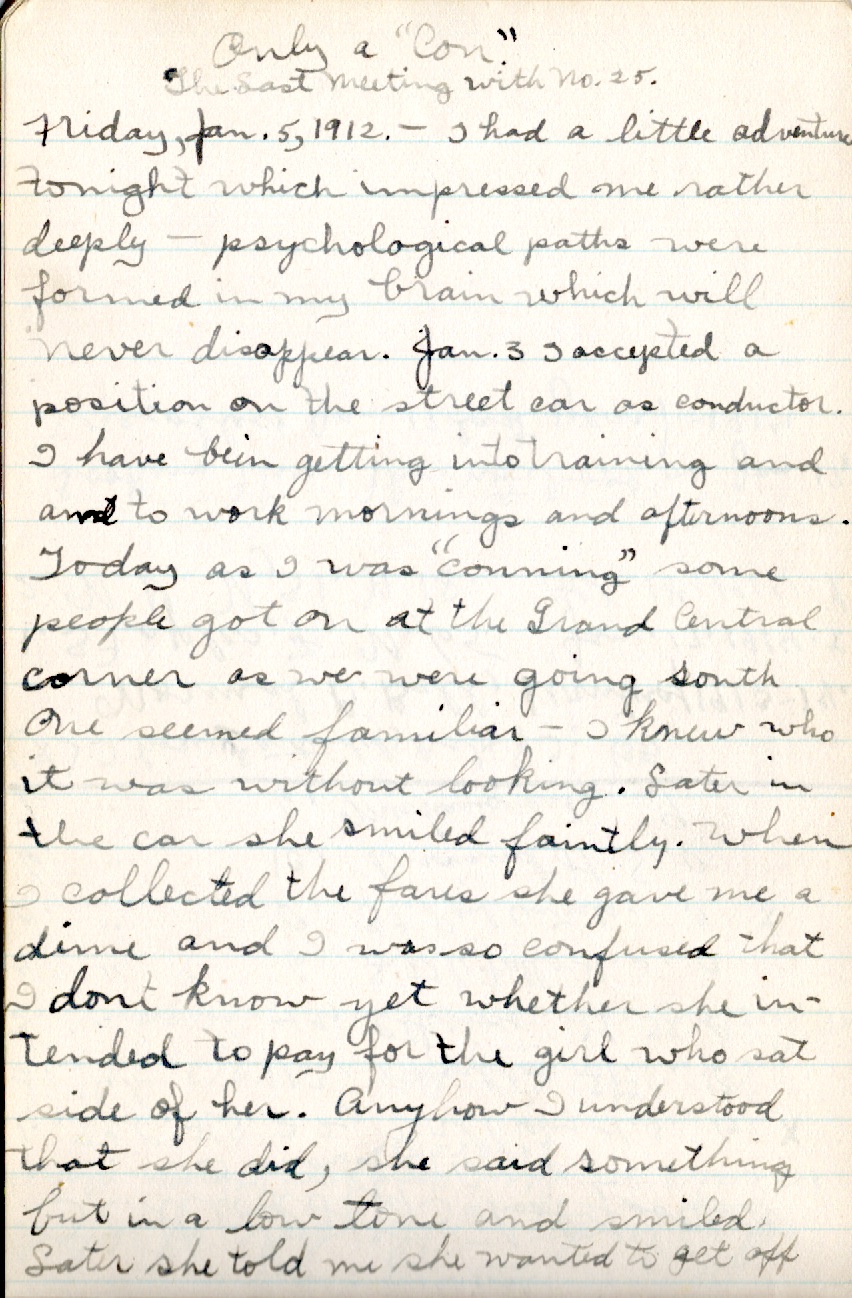 Only a "Con"
The Last Meeting with No. 25.
Friday, Jan. 5, 1912. — I had a little adventure
tonight which impressed me rather
deeply — psychological paths were
formed in my brain which will
never disappear. Jan. 3 I accepted a
position on the street car as conductor.
I have bein getting into training and
and to work mornings and afternoons.
Today as I was "conning" some
people got on at the Grand Central
corner as we were going south
One seemed familiar — I knew who
it was without looking. Later in
the car she smiled faintly. When
I collected the fares she gave me a
dime and I was so confused that
I dont know yet whether she in-
tended to pay for the girl who sat
side of her. Anyhow I understood
that she did, she said something
but in a low tone and smiled.
Later she told me she wanted to get off